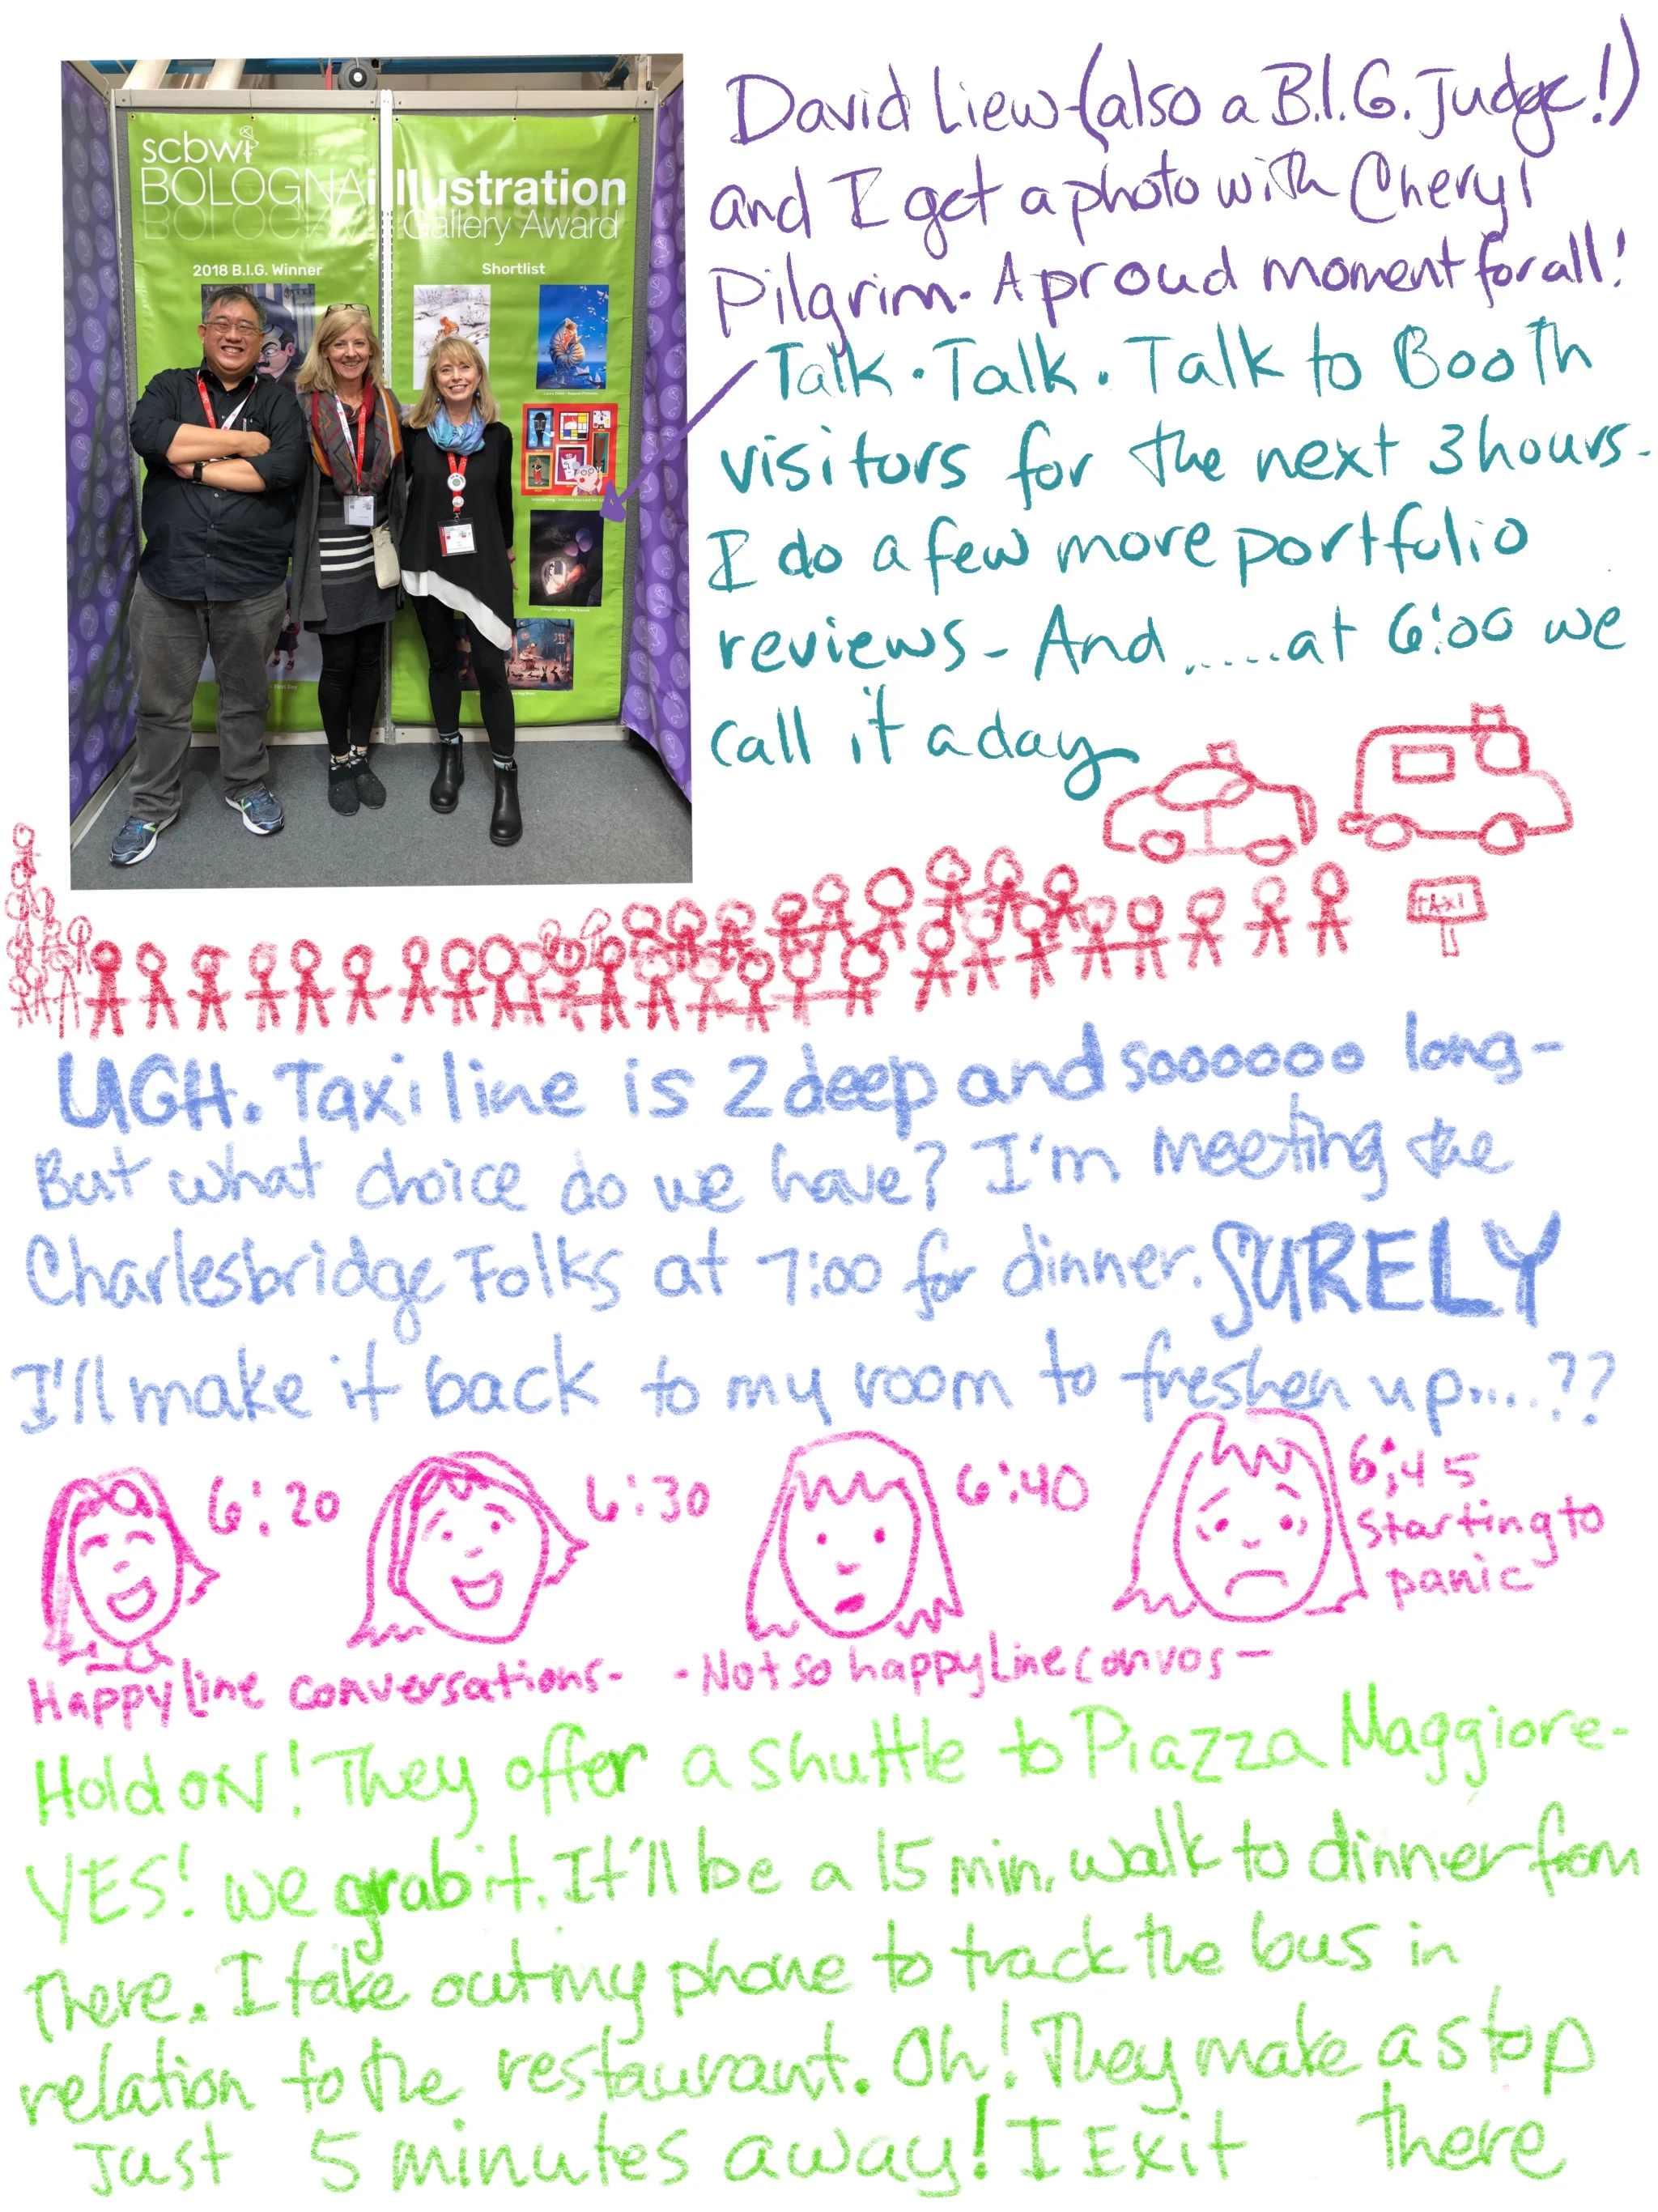 scbwi
BOLOGNA illustration
Gallery Award
2018 B.I.G. Winner
Shortlist
David Liew (also a B.I.G. Judge!)
and I get a photo with Cheryl
Pilgrim. A proud moment for all!
Talk. Talk. Talk to Booth
visitors for the next 3 hours.
I do a few more portfolio
reviews - And......at 6:00 we
call it a day
TAXI
UGH. Taxi line is 2 deep and soooooo long -
But what choice do we have? I'm meeting the
Charlesbridge Folks at 7:00 for dinner. SURELY
I'll make it back to my room to freshen up....??
6:20
6:30
6:40
6:45
Starting to
panic
Happy line conversations-
-Not so happy line convos-
Hold ON! They offer a shuttle to Piazza Maggiore-
YES! we grab it. It'll be a 15 min. walk to dinner from
There. I take out my phone to track the bus in
relation to the restaurant. Oh! They make a stop
Just 5 minutes away! I Exit there